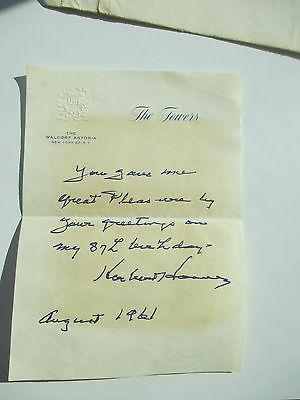 The Towers
THE
WALDORF ASTORIA
NEW YORK 22. N.Y.
You gave me
great Pleasure by
your greetings on
my 87th birthday-
Herbert Hoover
August 1961